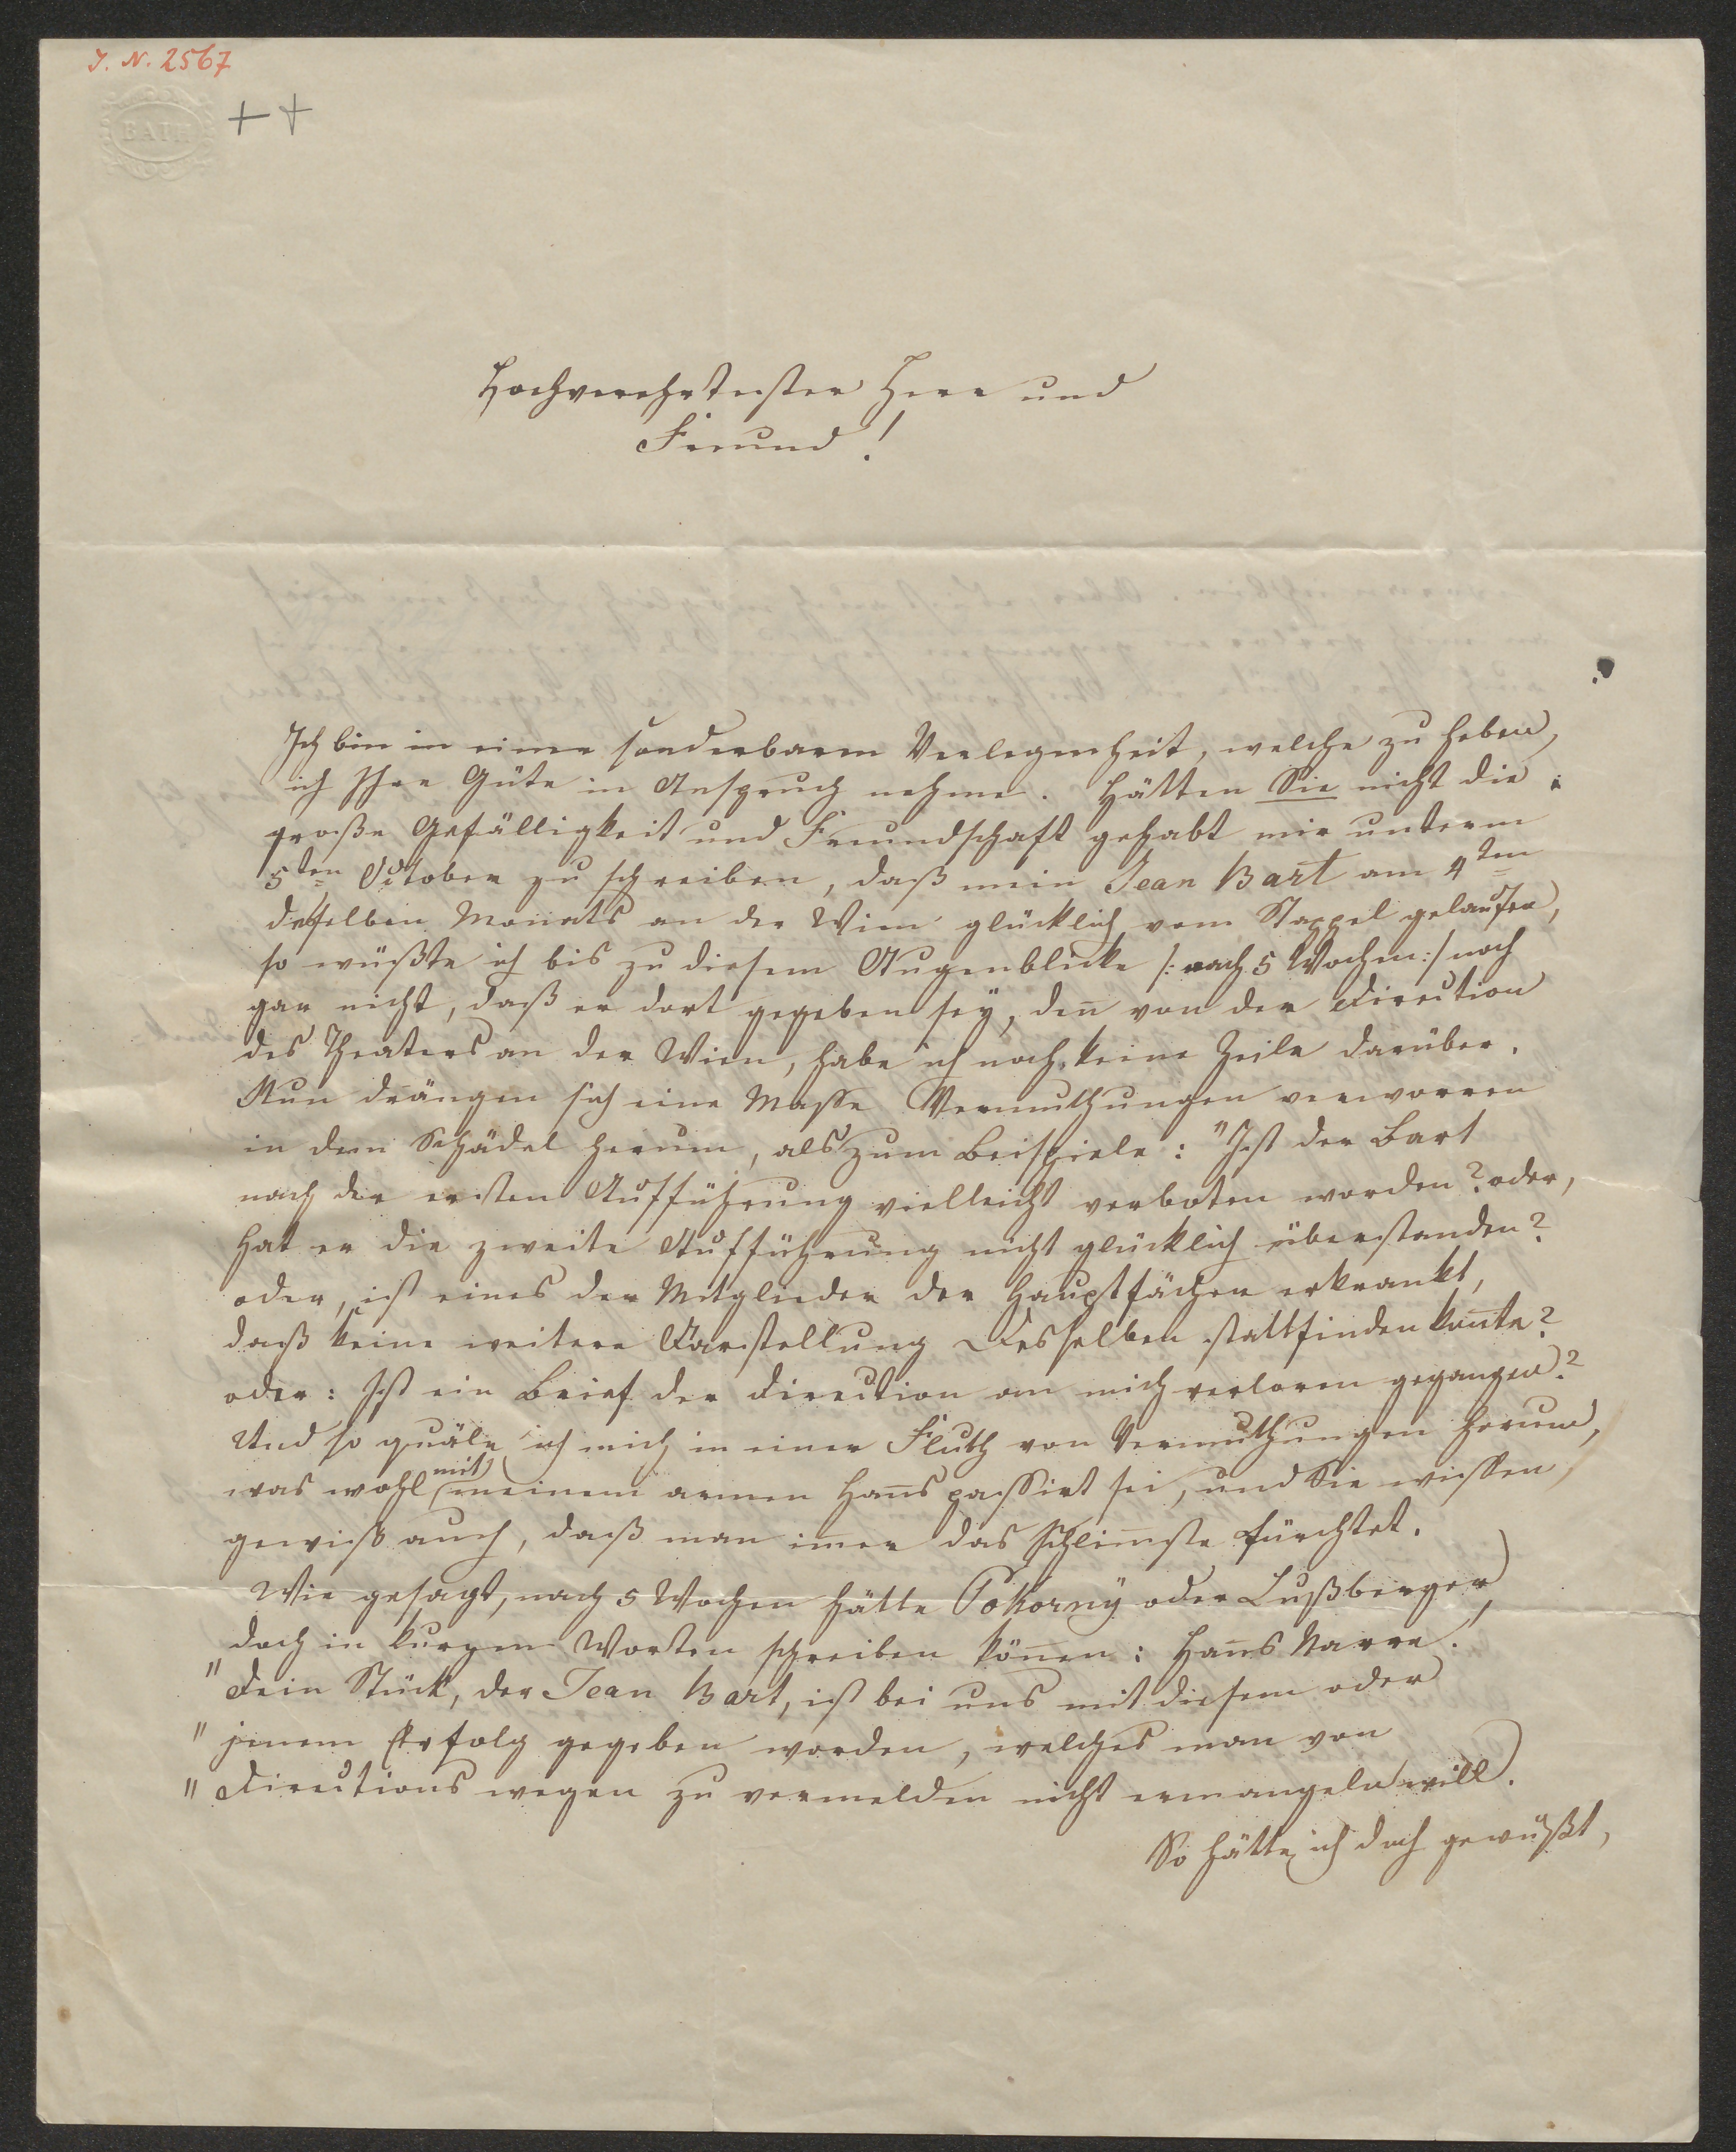 J. N. 2567
BATH
Hochverehrtester Herr und
Freund!
Ich bin in einer sonderbaren Verlegenheit, welche zu heben,
ich Ihre Güte in Anspruch nehme. Hätten Sie nicht die
große Gefälligkeit und Freundschaft gehabt mir unterm
5ten October zu schreiben, daß mein Jean Bart am 4ten
desselben Monats an der Wien glücklich vom Stappel gelaufen,
so wüßte ich bis zu diesem Augenblicke /: nach 5 Wochen :/ noch
gar nicht, daß er dort gegeben seÿ, den̄ von der Direction
des Theaters an der Wien, habe ich noch keine Zeile darüber.
Nun drängen sich eine Masse Vermuthungen verworren
in dem Schädel herum, als zum Beispiele: "Ist der Bart
nach der ersten Aufführung vielleicht verboten worden? oder,
hat er die zweite Aufführung nicht glücklich überstanden?
oder, ist eines der Mitglieder der Hauptfächer erkrankt,
daß keine weitere Darstellung desselben stattfinden kon̄te?
oder: Ist ein Brief der Direction an mich verloren gegangen?
Und so quäle ich mich in einer Fluth von Vermuthungen herum,
was wohl mit meinem armen Han̄s passirt sei, und Sie wissen,
gewiß auch, daß man im̄er das Schlim̄ste fürchtet.
Wie gesagt, nach 5 Wochen hätte Pokornÿ oder Lußberger
doch in kurzen Worten schreiben kön̄en: Han̄s Narre!
"Dein Stück, der Jean Bart, ist bei uns mit diesem oder
"jenem Erfolg gegeben worden, welches man von
"Directions wegen zu vermelden nicht ermangeln will.
So hätte ich doch gewußt,